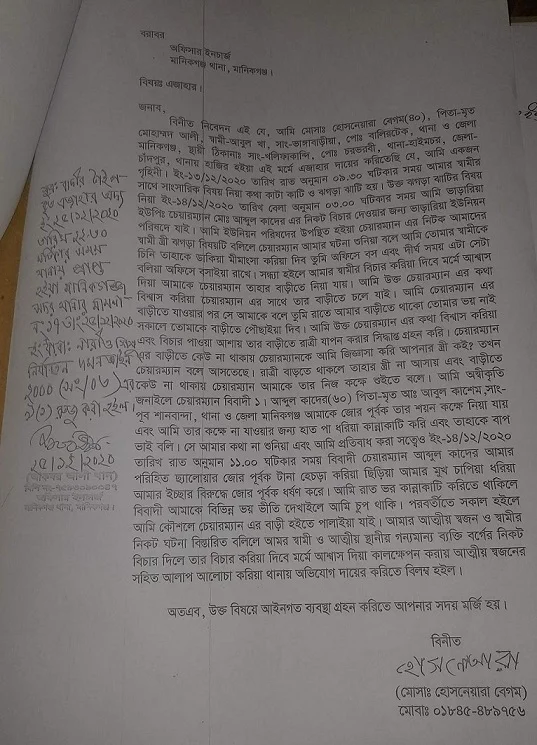 বরাবর
অফিসার ইনচার্জ
মানিকগঞ্জ থানা, মানিকগঞ্জ।
বিষয়ঃ এজাহার।
জনাব,
বিনীত নিবেদন এই যে, আমি মোসাঃ হোসনেয়ারা বেগম(৪০), পিতা-মৃত
মোহাম্মদ আলী, স্বামী-আবুল খা, সাং-ভাঙ্গাবাড়ীয়া, পোঃ বালিরটেক, থানা ও জেলা
মানিকগঞ্জ, স্থায়ী ঠিকানাঃ সাং-খলিফাকান্দি, পোঃ চরভরবী, থানা-হাইমচর, জেলা-
চাঁদপুর, থানায় হাজির হইয়া এই মর্মে এজাহার দায়ের করিতেছি যে, আমি একজন
গৃহিনী। ইং-১৩/১২/২০২০ তারিখ রাত অনুমান ০৯.৩০ ঘটিকার সময় আমার স্বামীর
সাথে সাংসারিক বিষয় নিয়া কথা কাটা কাটি ও ঝগড়া ঝাটি হয়। উক্ত ঝগড়া ঝাটির বিষয়
নিয়া ইং-১৪/১২/২০২০ তারিখ বেলা অনুমান ০৩.০০ ঘটিকার সময় আমি ভাড়ারিয়া
ইউপিঃ চেয়ারম্যান মোঃ আব্দুল কাদের এর নিকট বিচার দেওয়ার জন্য ভাড়ারিয়া ইউনিয়ন
পরিষদে যাই। আমি ইউনিয়ন পরিষদের উপস্থিত হইয়া চেয়ারম্যান এর নিটক আমাদের
স্বামী স্ত্রী ঝগড়া বিষয়টি বলিলে চেয়ারম্যান আমার ঘটনা শুনিয়া বলে আমি তোমার স্বামীকে
চিনি তাহাকে ডাকিয়া মীমাংসা করিয়া দিব তুমি অফিসে বস এবং দীর্ঘ সময় এটা সেটা
বলিয়া অফিসে বসাইয়া রাখে। সন্ধ্যা হইলে আমার স্বামীর বিচার করিয়া দিবে মর্মে আশ্বাস
দিয়া আমাকে চেয়ারম্যান তাহার বাড়ীতে নিয়া যায়। আমি উক্ত চেয়ারম্যান এর কথা
বিশ্বাস করিয়া চেয়ারম্যান এর সাথে তার বাড়ীতে চলে যাই। আমি চেয়ারম্যান এর
বাড়ীতে যাওয়ার পর সে আমাকে বলে তুমি রাতে আমার বাড়ীতে থাকো তোমার ভয় নাই
সকালে তোমাকে বাড়ীতে পৌছাইয়া দিব। আমি উক্ত চেয়ারম্যান এর কথা বিশ্বাস করিয়া
এবং বিচার পাওয়া আশায় তার বাড়ীতে রাত্রী যাপন করার সিদ্ধান্ত গ্রহন করি। চেয়ারম্যান
এর বাড়ীতে কেউ না থাকায় চেয়ারম্যানকে আমি জিজ্ঞাসা করি আপনার স্ত্রী কই? তখন
চেয়ারম্যান বলে আসতেছে। রাত্রী বাড়তে থাকলে তাহার স্ত্রী না আসায় এবং বাড়ীতে
কেউ না থাকায় চেয়ারম্যান আমাকে তার নিজ কক্ষে শুইতে বলে। আমি অস্বীকৃতি
জনাইলে চেয়ারম্যান বিবাদী ১। আব্দুল কাদের(৬০) পিতা-মৃত আঃ আবুল কাশেম,সাং-
পূব শানবান্দা, থানা ও জেলা মানিকগঞ্জ আমাকে জোর পূর্বক তার শয়ন কক্ষে নিয়া যায়
এবং আমি তার কক্ষে না যাওয়ার জন্য হাত পা ধরিয়া কান্নাকাটি করি এবং তাহাকে বাপ
ভাই বলি। সে আমার কথা না শুনিয়া এবং আমি প্রতিবাধ করা সত্ত্বেও ইং-১৪/১২/২০২০
তারিখ রাত অনুমান ১১.০০ ঘটিকার সময় বিবাদী চেয়ারম্যান আব্দুল কাদের আমার
পরিহিত ছ্যালোয়ার জোর পূর্বক টানা হেচড়া করিয়া ছিড়িয়া আমার মুখ চাপিয়া ধরিয়া
আমার ইচ্ছার বিরুদ্ধে জোর পূর্বক ধর্ষণ করে। আমি রাত ভর কান্নাকাটি করিতে থাকিলে
বিবাদী আমাকে বিভিন্ন ভয় ভীতি দেখাইলে আমি চুপ থাকি। পরবর্তীতে সকাল হইলে
আমি কৌশলে চেয়ারম্যান এর বাড়ী হইতে পালাইয়া যাই। আমার আত্মীয় স্বজন ও স্বামীর
নিকট ঘটনা বিস্তারিত বলিলে আমর স্বামী ও আত্মীয় স্থানীয় গন্যমান্য ব্যক্তি বর্গের নিকট
বিচার দিলে তার বিচার করিয়া দিবে মর্মে আশ্বাস দিয়া কালক্ষেপন করায় আত্মীয় স্বজনের
সহিত আলাপ আলোচা করিয়া থানায় অভিযোগ দায়ের করিতে বিলম্ব হইল।
অতএব, উক্ত বিষয়ে আইনগত ব্যবস্থা গ্রহন করিতে আপনার সদয় মর্জি হয়।
বিনীত
হোসনেআরা
(মোসাঃ হোসনেয়ারা বেগম)
মোবাঃ ০১৮৪৫-৪৮৯৭৫৬
এজাহার অদ্য
ইং ২৫/১২/২০২০
তারিখ ২২:৩০
ঘটিকার সময়
থানায় প্রাপ্ত
হইয়া মানিকগঞ্জ
সদর থানার মামলা
নং ১৭ তাং ২৫/১২/২০২০
নির্যাতন দমন আইন
২০০০ (সং/০৩) এর
৯(১) রুজু করা হইল।
২৫/১২/২০২০